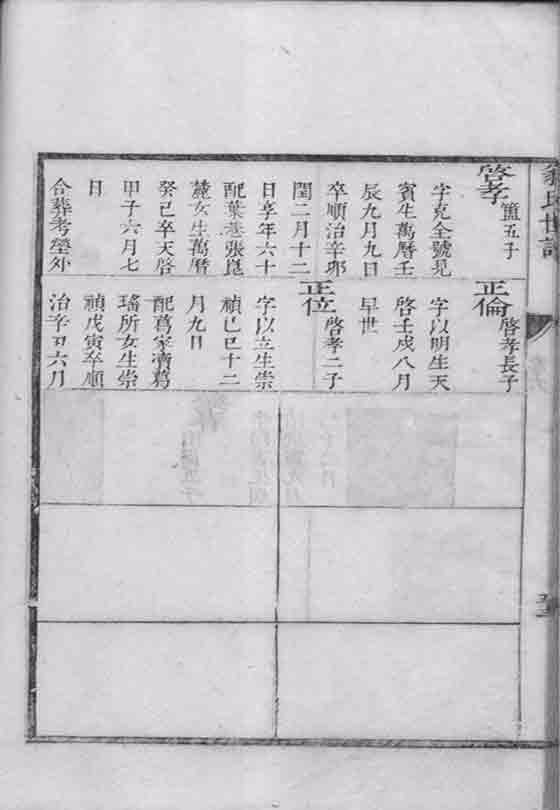 啓孝 簠五子
字克全號見
賓生萬曆壬
辰九月九日
卒順治辛卯
閏二月十二
日享年六十
配葉巷張崑
麓女生萬曆
癸巳卒天啓
甲子六月七
日
合葬考塋外
正倫 啓孝長子
字以明生天
啓壬戌八月
早世
正位 啓孝二子
字以立生崇
禎己巳十二
月九日
配葛家濟葛
瑤所女生崇
禎戊寅卒順
治辛丑六月